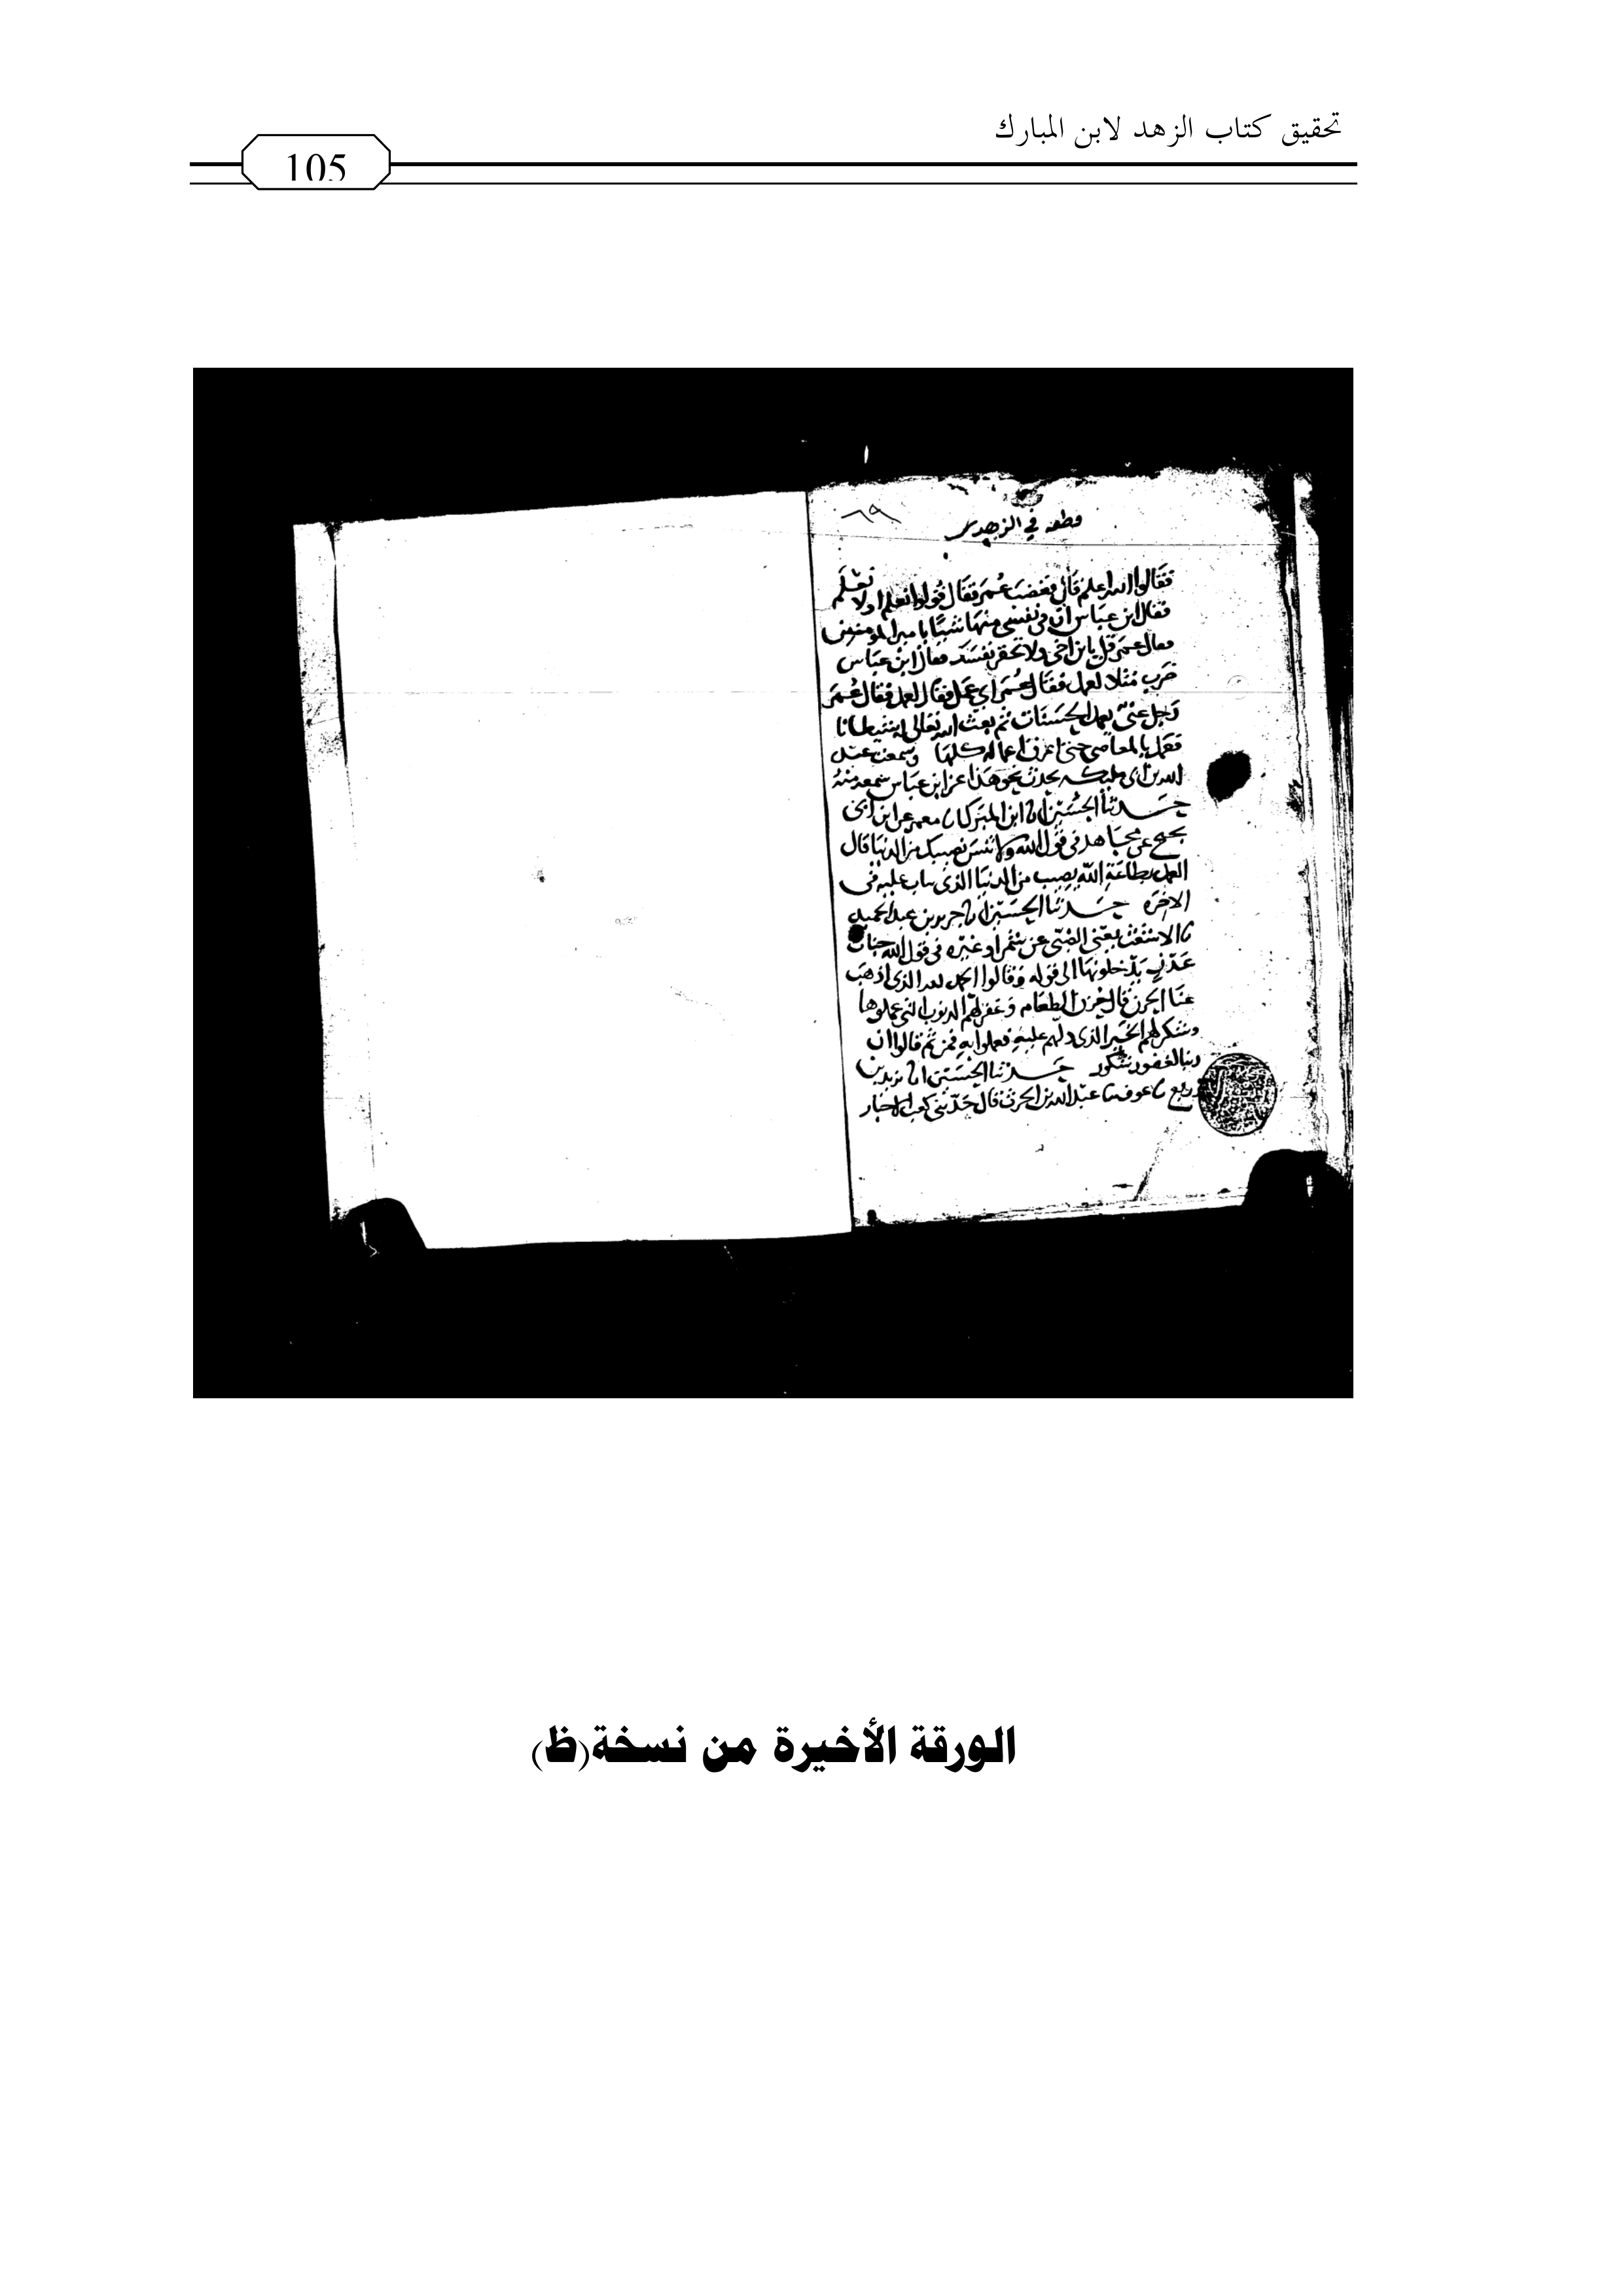 تحقيق كتاب الزهد لابن المبارك
105
قطعه في الزهد
فقالوا الله اعلم قال فغضب عمر فقال قولوا نعلم او لا نعلم
فقال ابن عباس ان في نفسي منها شيئا يا مير المومنين
فقال عمر قل يا بن اخي ولا تحقر نفسك فقال ابن عباس
ضرب مثلا لعمل فقال عمر اي عمل فقال لعمل فقال عمر
رجل غني يعمل الحسنات ثم بعث الله تعالى له شيطانا
فعمل بالمعاصي حتى اغرق اعماله كلها وسمعت عبد
الله بن ابي مليكه يحدث نحو هذا عن ابن عباس سمعه منه
حدثنا الحسين انا ابن المبرك انا معمر عن ابن ابي
نجيح عن مجاهد في قول الله ولا تنس نصيبك من الدنيا قال
العمل بطاعة الله نصيب من الدنيا الذي يثاب عليه في
الاخرة حدثنا الحسين انا جرير بن عبد الحميد
نا الاشعث يعني القمي عن شمر او غيره في قول الله جنات
عدن يدخلونها الى قوله وقالوا الحمد لله الذي اذهب
عنا الحزن قال حزن الطعام وغفر لهم الذنوب التي عملوها
وشكر لهم الخير الذي دلهم عليه فعملوا به فمن ثم قالوا ان
ربنا لغفور شكور حدثنا الحسين انا يزيد بن
زريع نا عوف نا عبد الله بن الحرث قال حدثني كعب الاحبار
الورقة الأخيرة من نسخة(ظ)